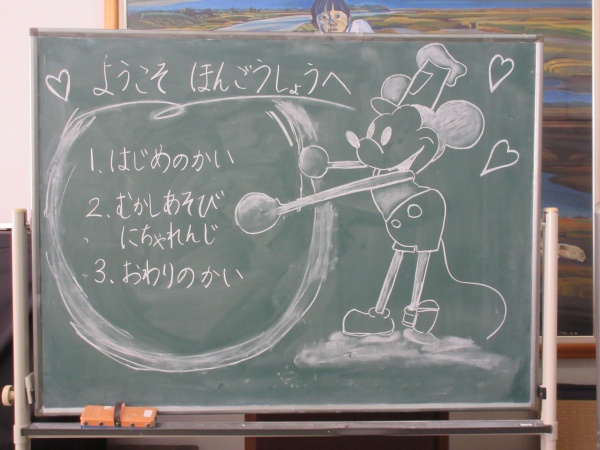 ようこそ ほんごうしょうへ
1. はじめのかい
2. むかしあそび
にちゃれんじ
3. おわりのかい